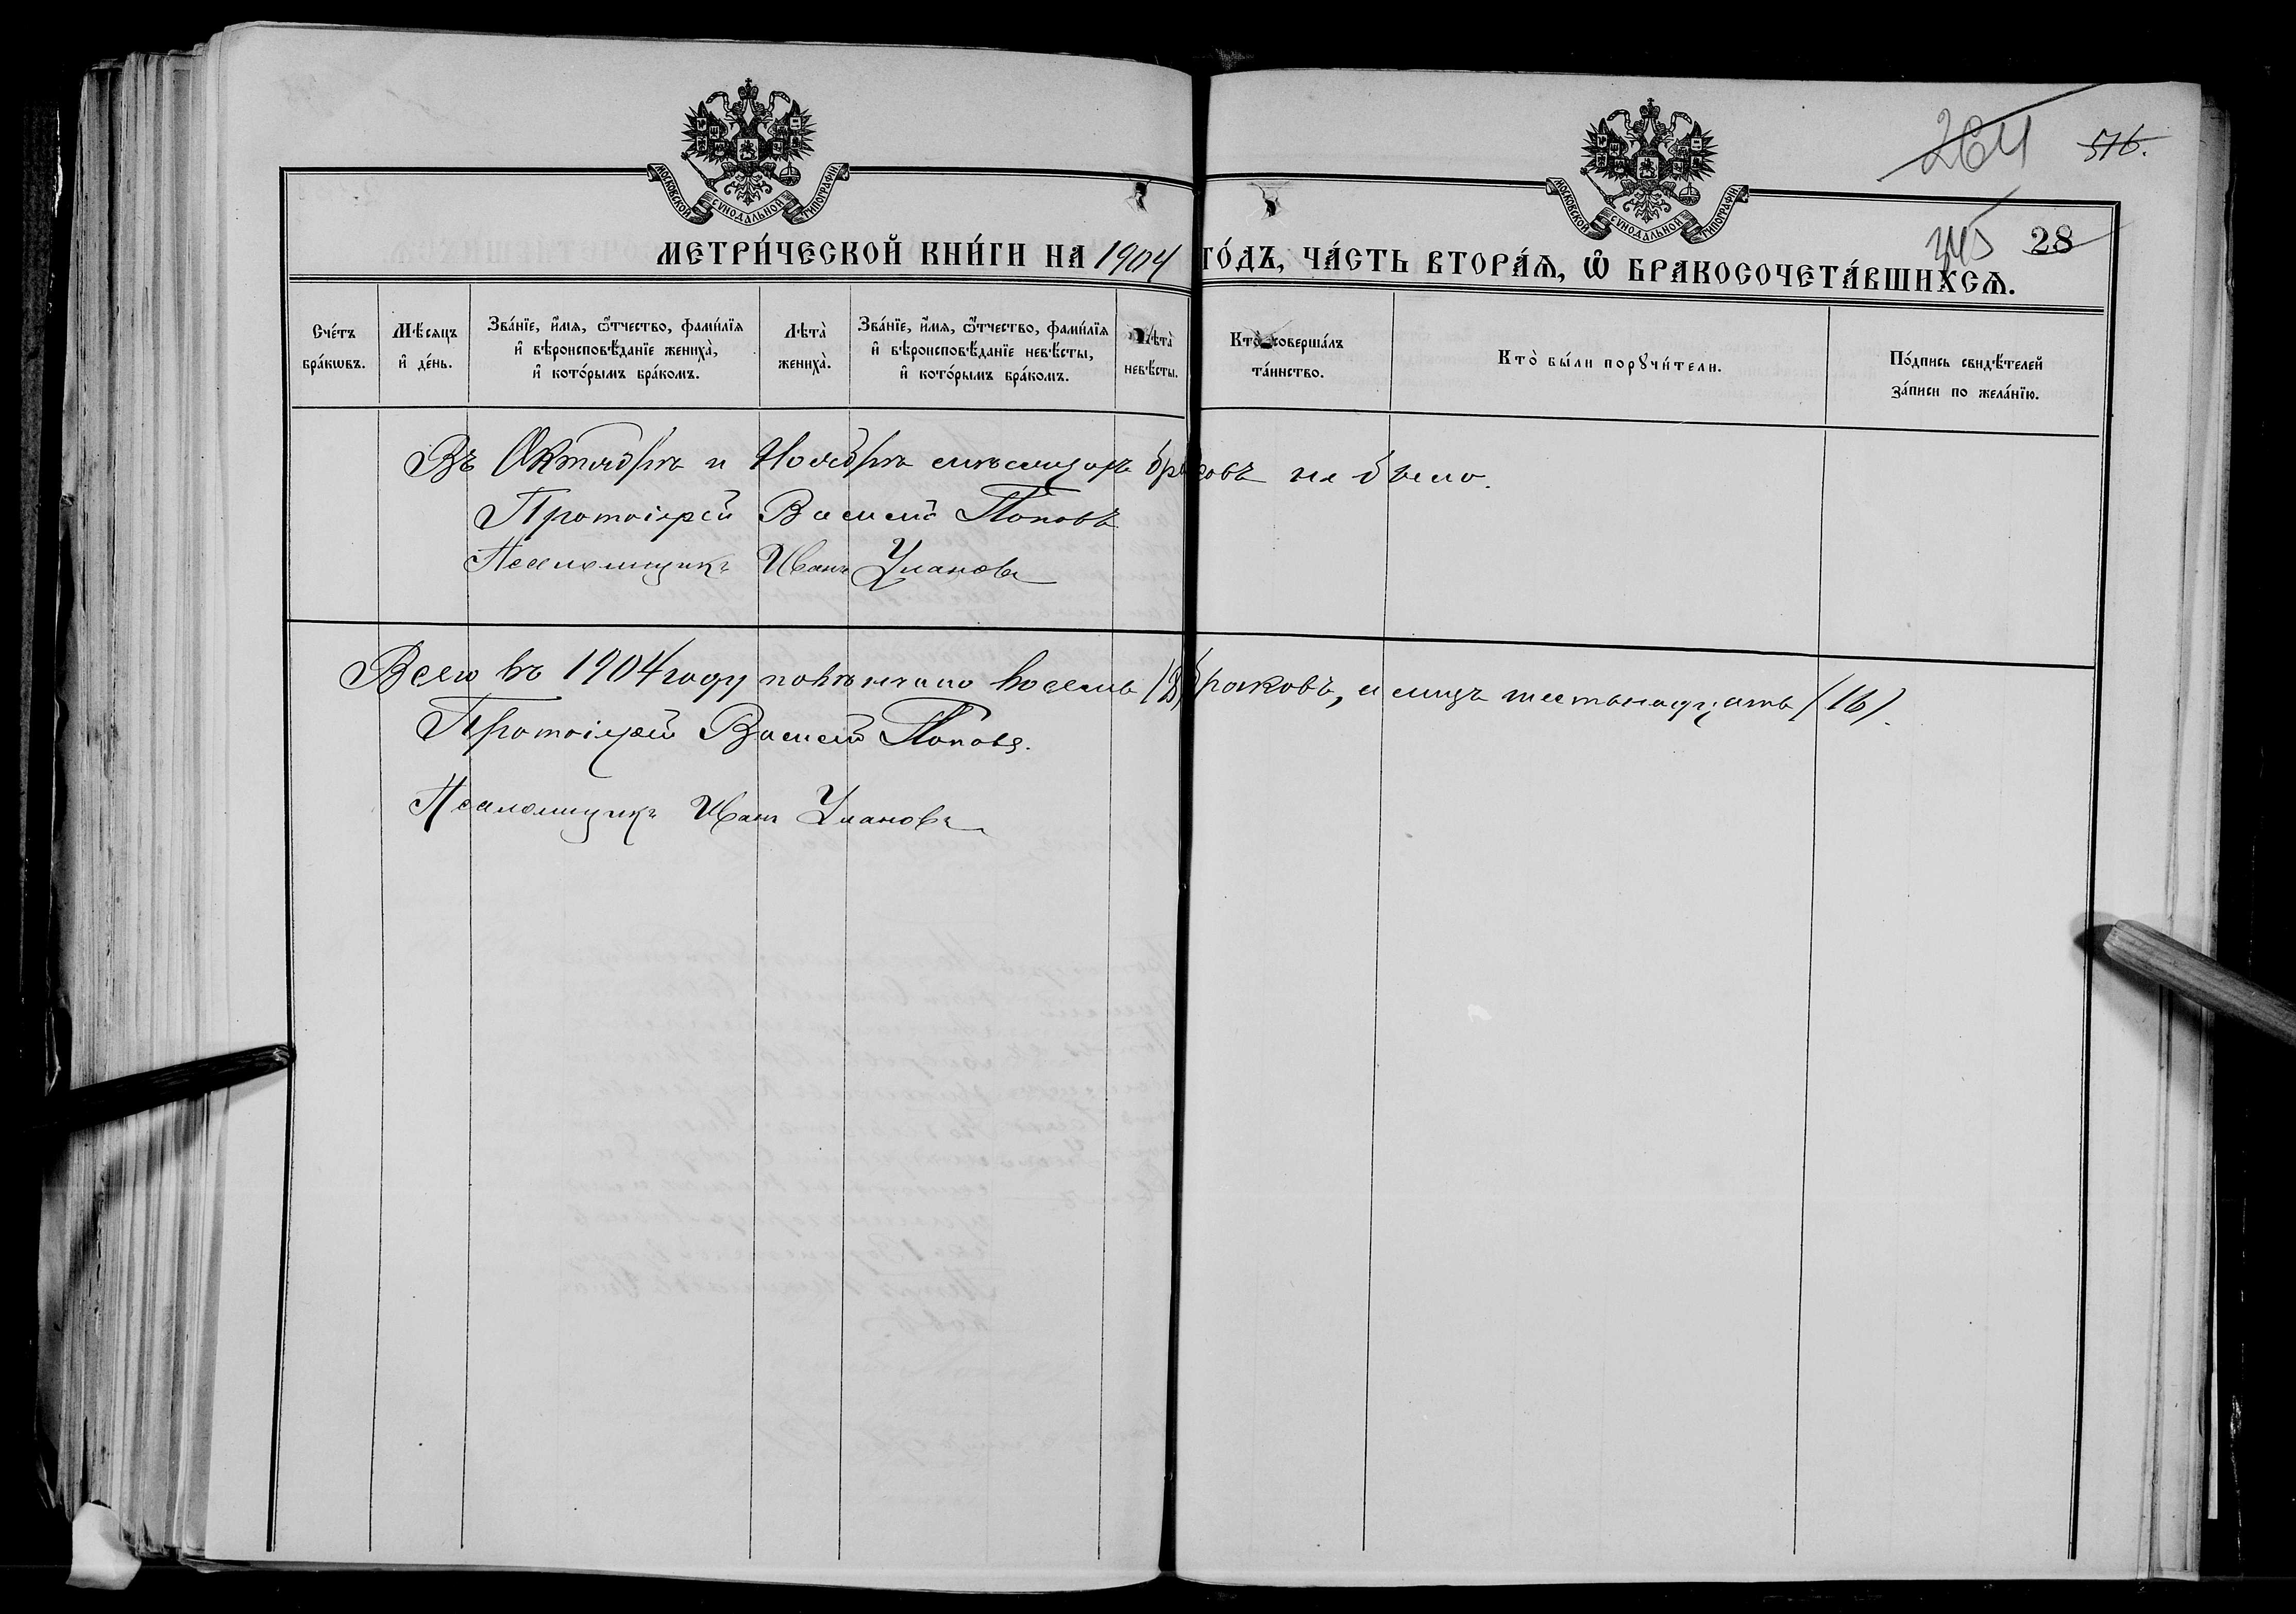 264 516.
МОСКОВСКОЙ СѴНОДАЛЬНОЙ ТИПОГРАФІИ
МОСКОВСКОЙ СѴНОДАЛЬНОЙ ТИПОГРАФІИ
345 28
МЕТРИ́ЧЕСКОЙ КНИ́ГИ НА 1904 ГО́ДЪ, ЧА́СТЬ ВТОРА́Ѧ, Ѽ БРАКОСОЧЕТА́ВШИХСѦ.
Сче́тъ бра́кѡвъ.
Мѣ́сяцъ и҆ де́нь.
Зва́нїе, и҆́мя, ѻ҆́тчество, фами́лїя и҆ вѣроисповѣ́данїе жениха̀, и҆ кото́рымъ бра́комъ.
Лѣта̀ жениха̀.
Зва́нїе, и҆́мя, ѻ҆́тчество, фами́лїя и҆ вѣроисповѣ́данїе невѣ́сты, и҆ кото́рымъ бра́комъ.
Лѣта̀ невѣ́сты.
Кто̀ соверша́лъ та́инство.
Кто̀ бы́ли порꙋчи́тели.
По́дпись свидѣ́телей за́писи по жела́нїю.
Въ Октябрѣ и Ноябрѣ мѣсяцахъ браковъ не было.
Протоіерей Василій Поповъ
Псаломщикъ Иванъ Улановъ
Всего въ 1904 году повѣнчано восемь (8) браковъ, а лицъ шестьнадцать (16).
Протоіерей Василій Поповъ.
Псаломщикъ Иванъ Улановъ